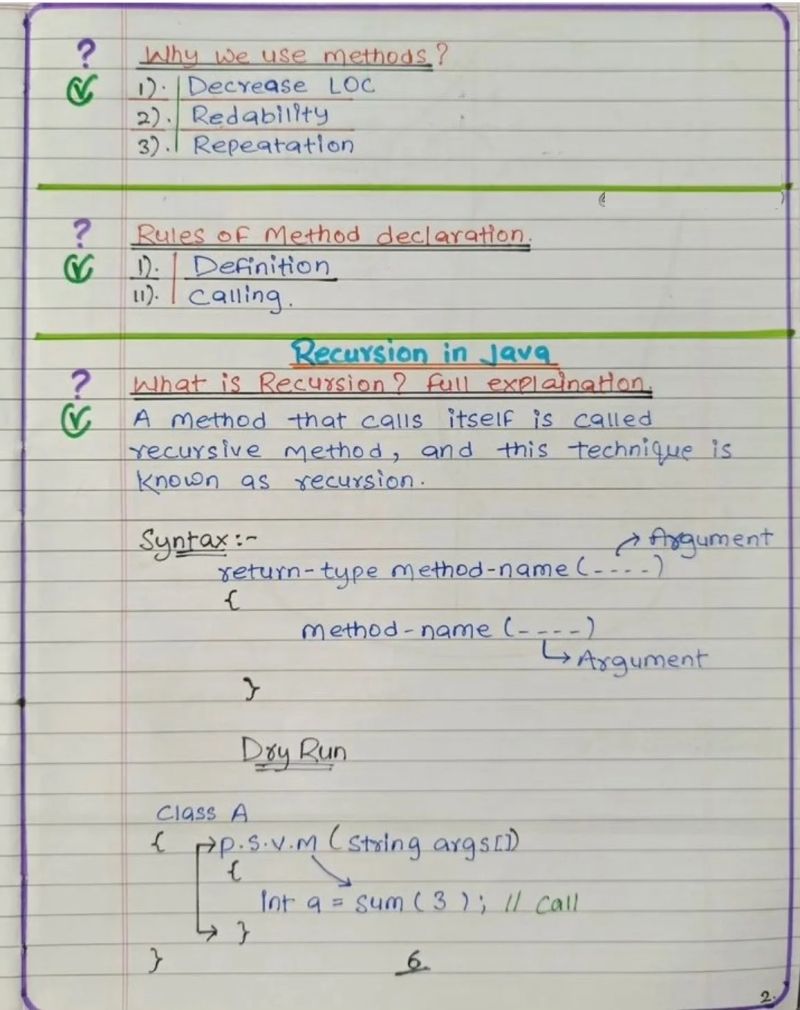 ? Why we use methods?
1). Decrease LOC
2). Redability
3). Repeatation
? Rules of Method declaration.
1). Definition
11). Calling.
Recursion in Java
? What is Recursion? Full explaination.
A method that calls itself is called
recursive method, and this technique is
known as recursion.
Syntax :-
→ Argument
return-type method-name (----)
{
method-name (----)
↳ Argument
}
Dry Run
Class A
{ → p.s.v.m (string args[])
{
int a = sum (3); // call
→ }
} 6
2.